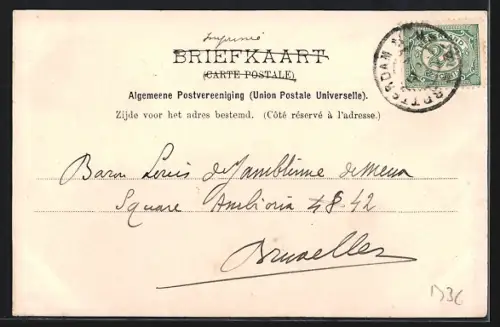 Imprimé
BRIEFKAART
(CARTE POSTALE)
Algemeene Postvereeniging (Union Postale Universelle).
Zijde voor het adres bestemd. (Côté réservé à l'adresse.)
ROTTERDAM
Baron Louis de Jamblinne de Meux
Square Ambiorix 48-42
Bruxelles
D3C